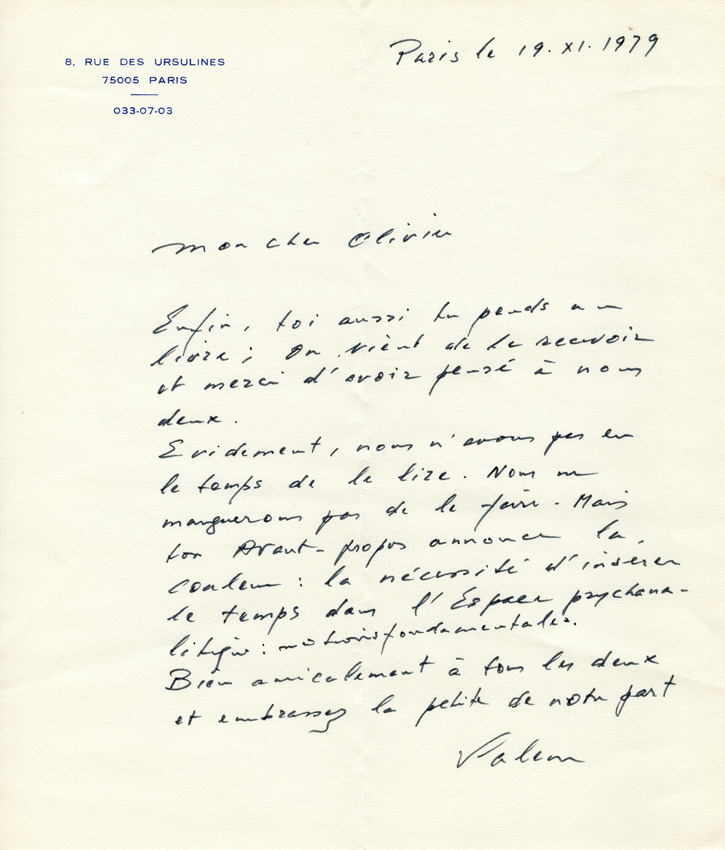 8, RUE DES URSULINES
75005 PARIS
033-07-03
Paris le 19. XI. 1979
mon cher Olivier
Enfin, toi aussi tu ponds un
livre; On vient de le recevoir
et merci d'avoir pensé à nous
deux.
Evidement, nous n'avons pas eu
le temps de le lire. Nous ne
manquerons pas de le faire. Mais
ton Avant-propos annonce la
couleur : la nécessité d'inserer
le temps dans l'Espace psychana-
litique : notions fondamentales.
Bien amicalement à tous les deux
et embrassez la petite de notre part